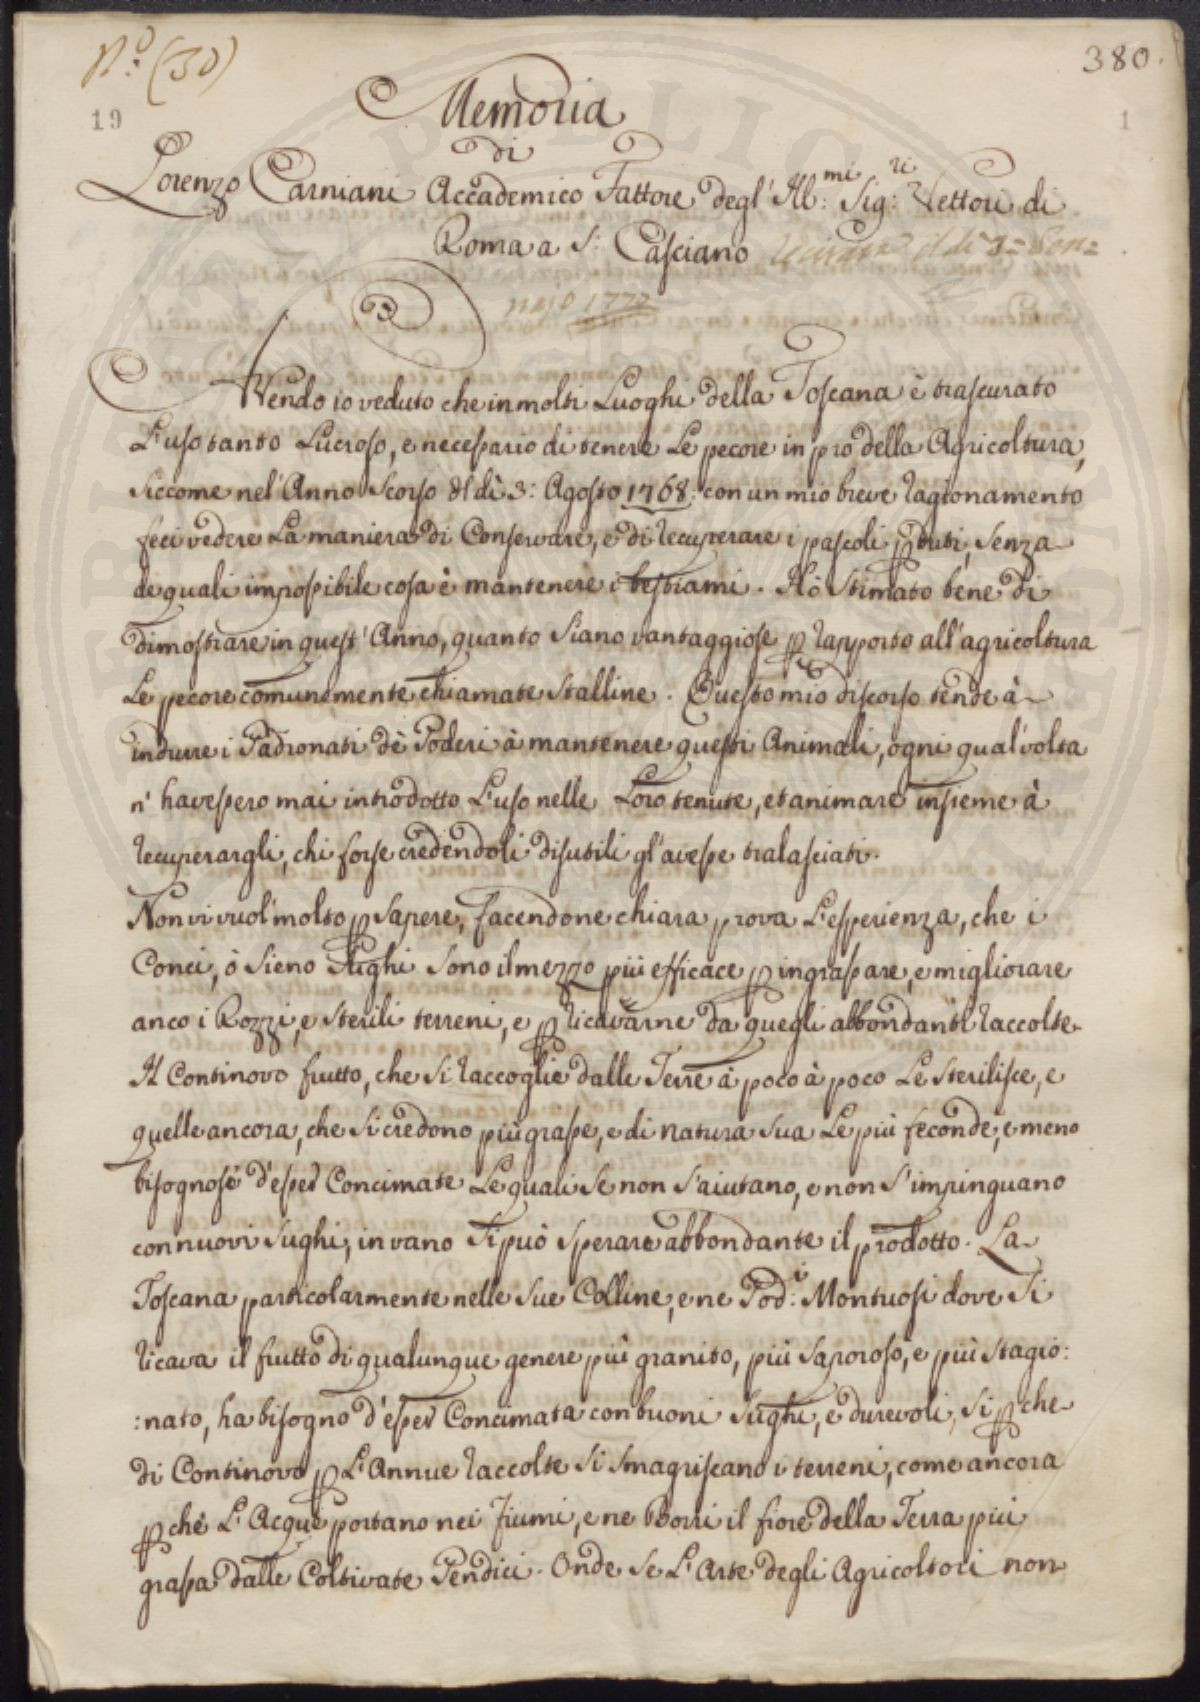 N.o (30)
380.
19
1
Memoria
di
Lorenzo Carniani Accademico Fattore degl' Ill:mi Sig:ri Vettori di
Roma a S: Casciano il dì 3 = Gen=
najo 1770
Avendo io veduto che in molti Luoghi della Toscana è trascurato
L'uso tanto Lucroso, e necessario di tenere Le pecore in pro della Agricoltura,
siccome nel'Anno Scorso il dì 3: Agosto 1768: con un mio breve ragionamento
feci vedere La maniera di Conservare, e di recuperare i pascoli pduti, senza
de quali impossibile cosa è mantenere i bestiami. Hò stimato bene di
dimostrare in quest'Anno, quanto siano vantaggiose p rapporto all'agricoltura
Le pecore comunemente chiamate stalline. Questo mio discorso tende à
indurre i Padronati dè Poderi à mantenere questi Animali, ogni qual'volta
n'havessero mai introdotto L'uso nelle Loro tenute, et animare insieme à
recuperargli, chi forse credendoli disutili gl'avesse tralasciati.
Non vi vuol'molto p sapere, facendone chiara prova L'esperienza, che i
Conci, ò sieno sughi sono il mezzo più efficace p ingrassare, e migliorare
anco i Rozzi, e sterili terreni, e p ricavarne da quegli abbondanti raccolte
Il Continovo frutto, che si raccoglie dalle Terre à poco à poco Le sterilisce, e
quelle ancora, che si credono più grasse, e di natura sua Le più feconde, e meno
bisognose d'esser Concimate Le quali se non s'aiutano, e non s'impinguano
con nuovi sughi, in vano si può sperare abbondante il prodotto. La
Toscana particolarmente nelle sue Colline, e ne Pod:i Montuosi dove si
ricava il frutto di qualunque genere più granito, più saporoso, e più stagio:
:nato, ha bisogno d'esser Concimata con buoni sughi, e durevoli, si pche
di Continovo p L'Annue raccolte si smagriscano i terreni, come ancora
pchè L'Acque portano nei Fiumi, e ne Borri il fiore della Terra più
grassa dalle Coltivate Pendici. Onde se L'Arte degli Agricoltori non